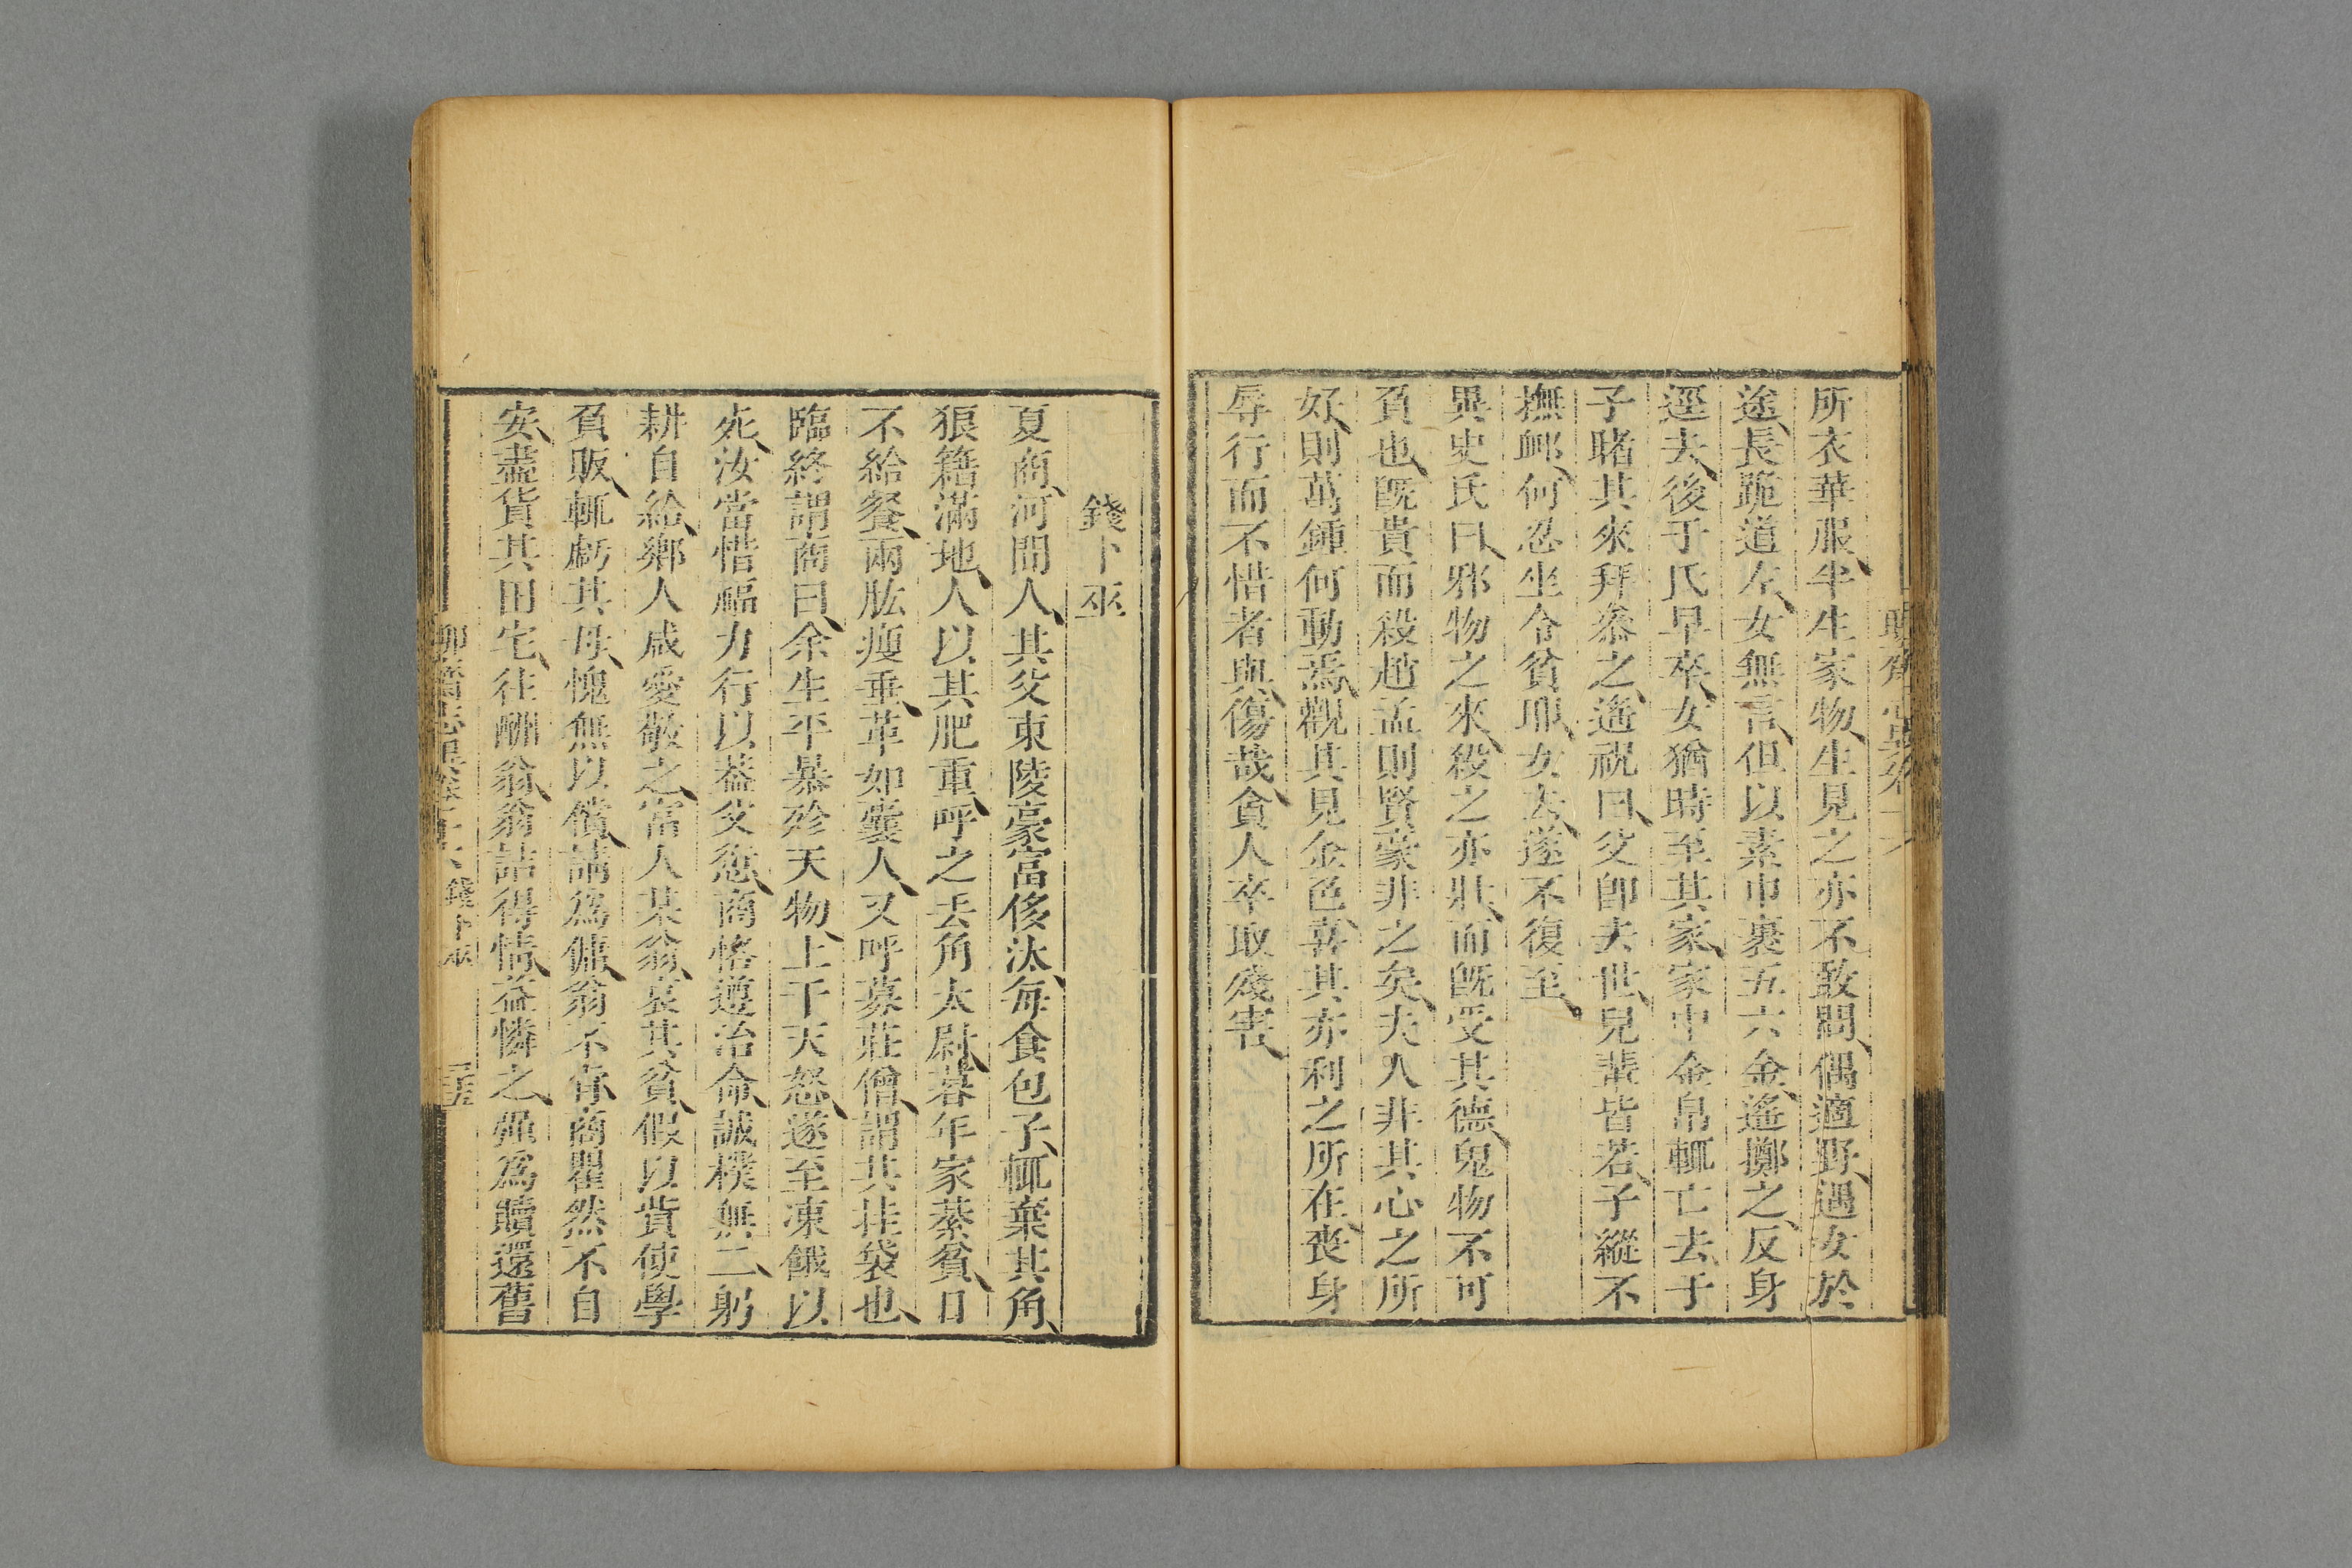 所衣華服半生家物生見之亦不敢問偶適野遇女於
途長跪道左女無言但以素巾裹五六金遙擲之反身
逕去後于氏早卒女猶時至其家家中金帛輒亡去于
子睹其來拜參之遙祝曰父即去世兒輩皆若子縱不
撫卹何忍坐令貧耶女去遂不復至
異史氏曰邪物之來殺之亦壯而既受其德鬼物不可
負也既貴而殺趙孟則賢豪非之矣夫人非其心之所
好則萬鍾何動焉觀其見金色喜其亦利之所在喪身
辱行而不惜者與傷哉貪人卒取殘害
錢卜巫
夏商河間人其父東陵豪富侈汰每食包子輒棄其角
狼籍滿地人以其肥重呼之丟角太尉暮年家綦貧日
不給餐兩肱瘦垂革如囊人又呼募莊僧謂其挂袋也
臨終謂商曰余生平暴殄天物上干天怒遂至凍餓以
死汝當惜福力行以蓋父愆商恪遵治命誠樸無二躬
耕自給鄉人咸愛敬之富人某翁哀其貧假以貲使學
負販輒虧其母愧無以償請為傭翁不肯商瞿然不自
安盡貨其田宅往酬翁翁詰得情益憐之強為贖還舊
錢卜巫